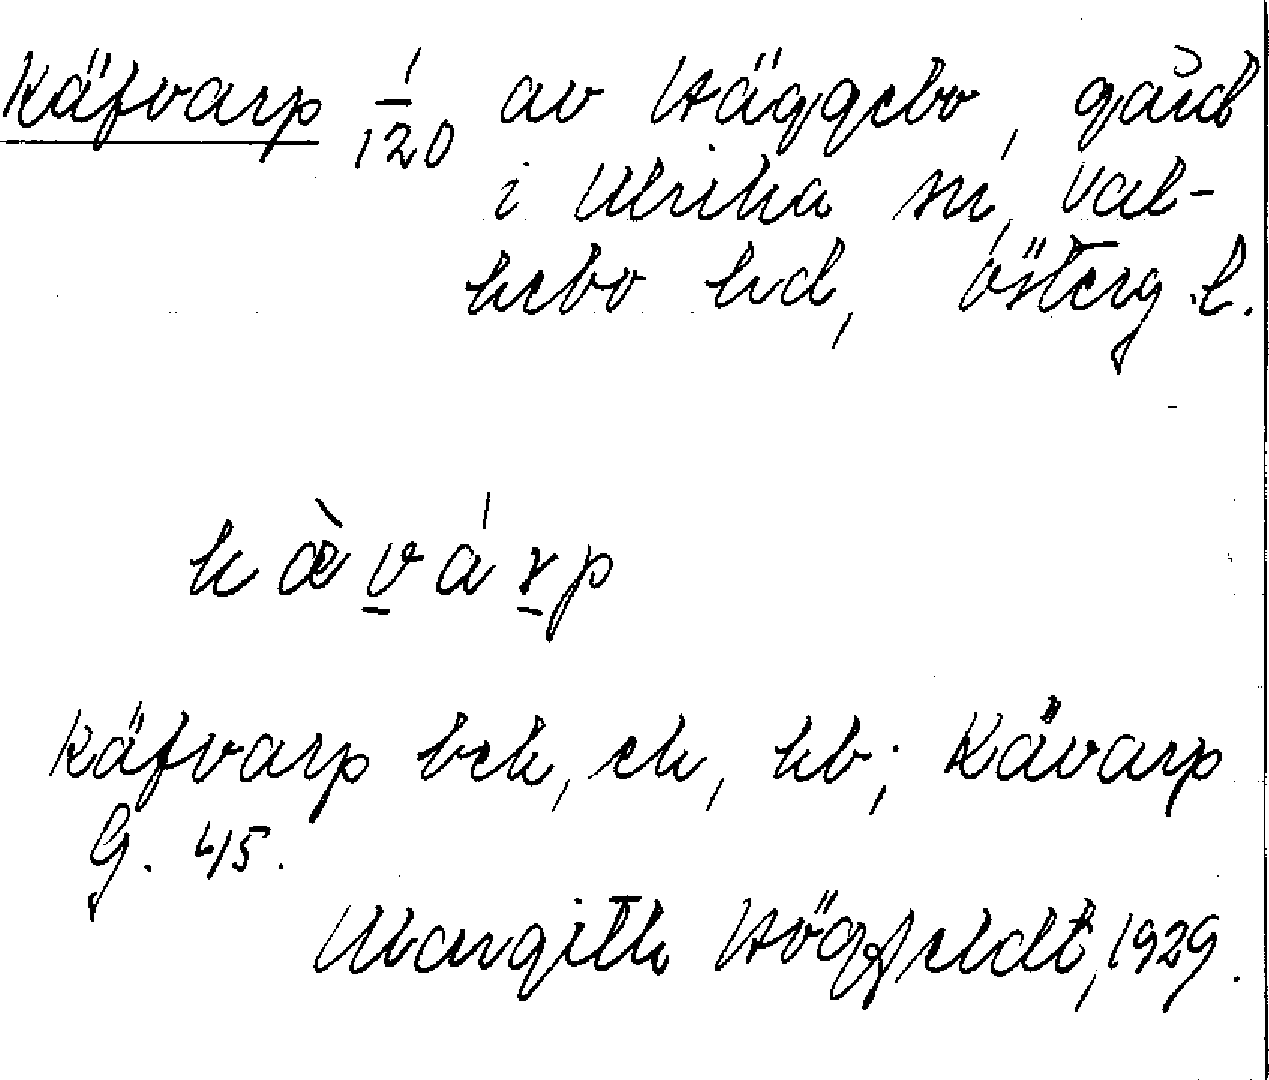 Käfvarp 1/120 av Häggebo, gård
i Ulrika sn, Val-
kebo hd, Österg. l.
kæ̀várp
Käfvarp bek, ek, kb; Kävarp
G. 45.
Margith Högfeldt, 1929.